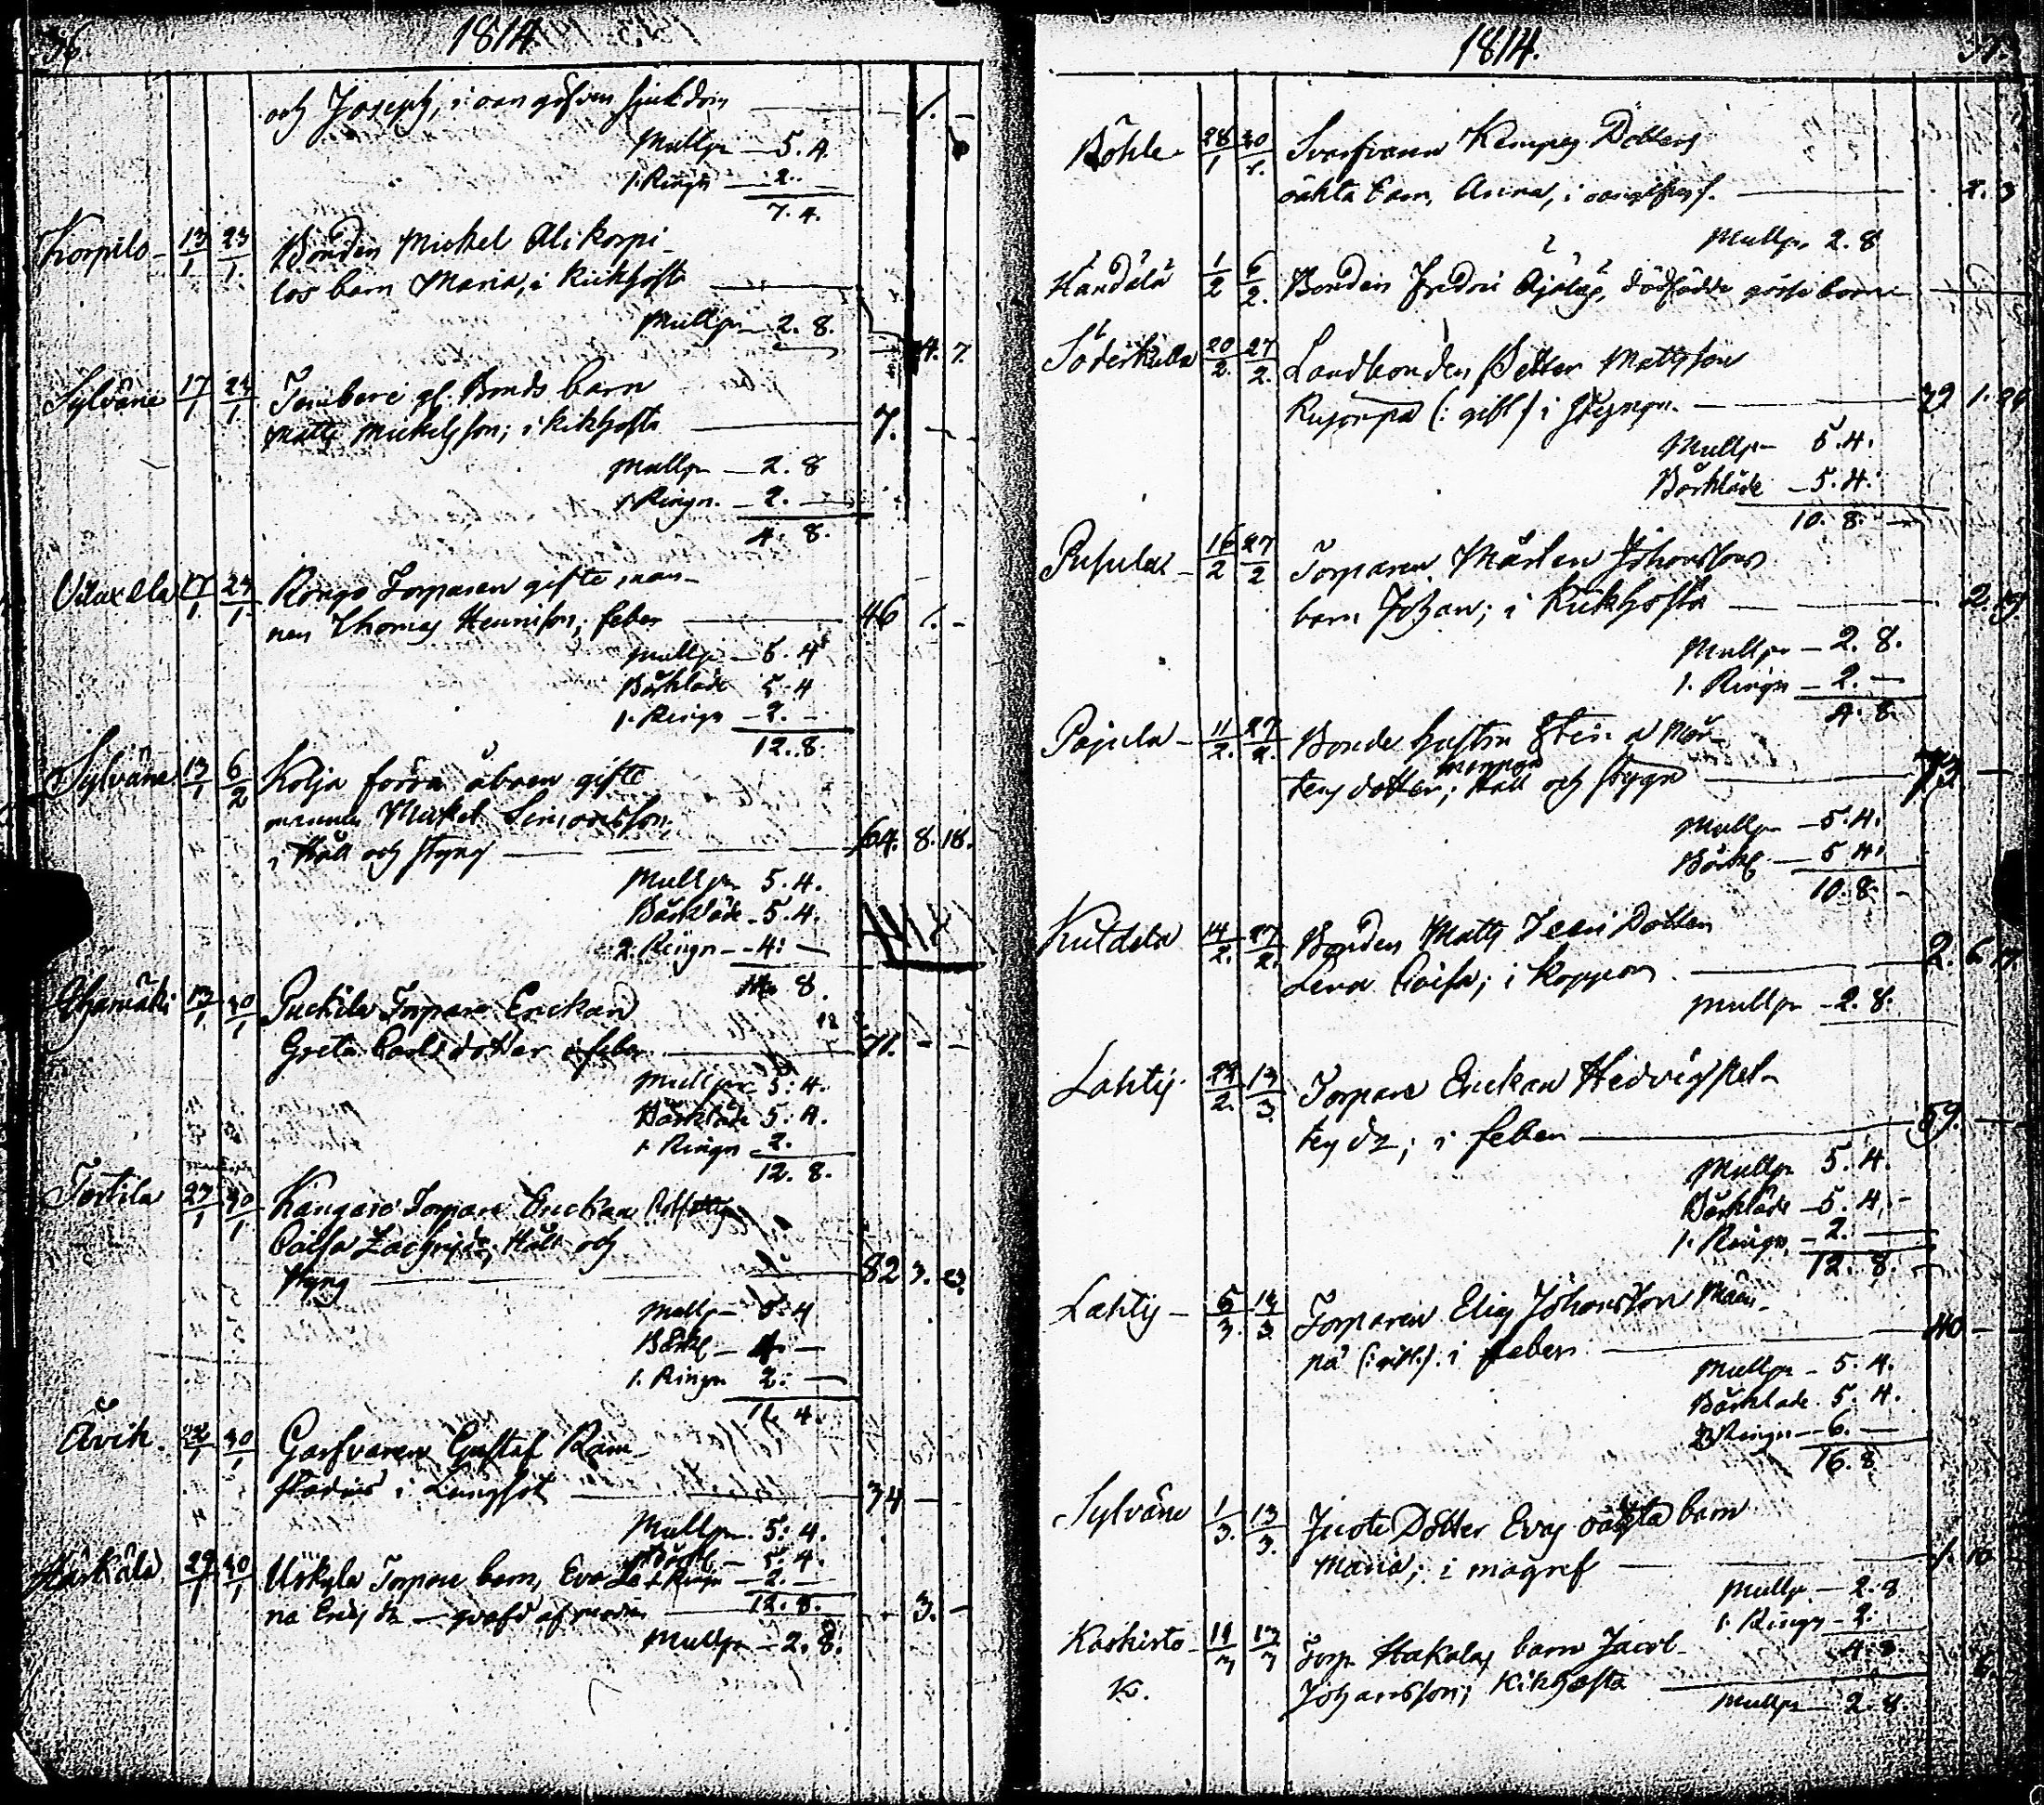 36.
1814
och Joseph, i oangifven sjukdom — 1. —
Mullpn — 5. 4.
1. Ringn — 2. —
7. 4.
Korpilo — 13/1 23/1 Bonden Mickel Alikorpi-
los barn Maria, i Kikhosta — 4. 7
Mullpn — 2. 8.
Sylväne 17/1 24/1 gl. Bonds barn
Matts Mickelsson; i kikhosta — 7. — —
Mullpn — 2. 8
1 Ringn. — 2. —
4. 8.
17/1 24/1 Torparen gifte man-
nen Thomas Hennisson; feber — 46 1. —
Mullpn — 5. 4
Bårkläde 5. 4
1. Ringn — 2. —
12. 8.
Sylväne 13/1 6/2 Kolja förra åboen gifte
mannen Mickel Simonsson,
i Håll och styng — 64. 8. 18.
Mullpn 5. 4.
Bårkläde — 5. 4.
2. Ringn — 4. —
8.
13/1 30/1 Puckila Torpare Enckan
Greta Carlsdotter i feber — 71. — —
Mullpn 5. 4.
Bårkläde 5. 4.
1. Ringn 2.
12. 8.
Tortila 27/1 30/1 Kangare Torpare Enckan
Caisa Zachrisdr, Håll och
styng — 82 3. 3.
Mullpn — 5. 4
Bårkl — 4. —
1. Ringn 2. —
11. 4.
Åvik. 22/1 30/1 Garfvaren Gustaf Ram-
stadius i Lungsot — 34 — —
Mullpn. 5. 4.
Bårkl — 5. 4.
1 Ringn — 2. —
12. 8.
Härkälä 29/1 30/1 Uskyla Torpare barn, Eva Le-
na Ericsdr — qvafd af modren — . 3. —
Mullpn — 2. 8.
1814.
37.
Böhle 28/1 30/1 Svarfvaren Kempes Dotters
oäkta barn, Anna, i oangifven s. — . 2. 3
Mullpn 2. 8
Handålå 1/2 6/2. Bonden Fredric Äjälas, dödfödde gosse barn —
Söderkulla 20/2. 27/2. Landbonden Petter Mattsson
Rusorpa (: gift :) i styngn. — 79 1. 24
Mullpn 5. 4.
Bårkläde — 5. 4.
10. 8. —
Pusula — 16/2 27/2 Torparen Mårten Johanssons
barn Johan; i Kikhosta — 2. 19.
Mullpn — 2. 8.
1. Ringn — 2. —
4. 8.
Pajula — 11/2. 27/2. Bonde hustru Stina Mår-
tens dotter; Håll och styng — 73 —
Mullpn — 5. 4.
Bårkl — 5. 4.
10. 8. —
Kutdela 14/2. 27/2. Bonden Matts Dotter
Lena Caisa; i koppor — 2. 6. 17.
Mullpn — 2. 8.
Lahtis. 22/2. 13/3. Torpare Enckan Hedvig Pet-
ters dr; i feber — 59. —
Mullpn 5. 4.
Bårkläde — 5. 4. —
1. Ringn. — 2. —
12. 8.
Lahtis — 5/3. 13/3. Torparen Elias Johansson Män-
pä (: gift :). i feber — 40 — —
Mullpn — 5. 4.
Bårkläde. 5. 4.
3 Ringn — 6. —
16. 8
Sylväne 1/3. 13/3. Juote Dotter Evas oäkta barn
Maria; i magref — 1. 10.
Mullpn — 2. 8
1. Ringn — 2. —
4. 8.
Koskisto — 11/3 13/3 Torp. Hakalas barn Jacob
K. Johansson; Kikhosta — 6.
Mullpn — 2. 8